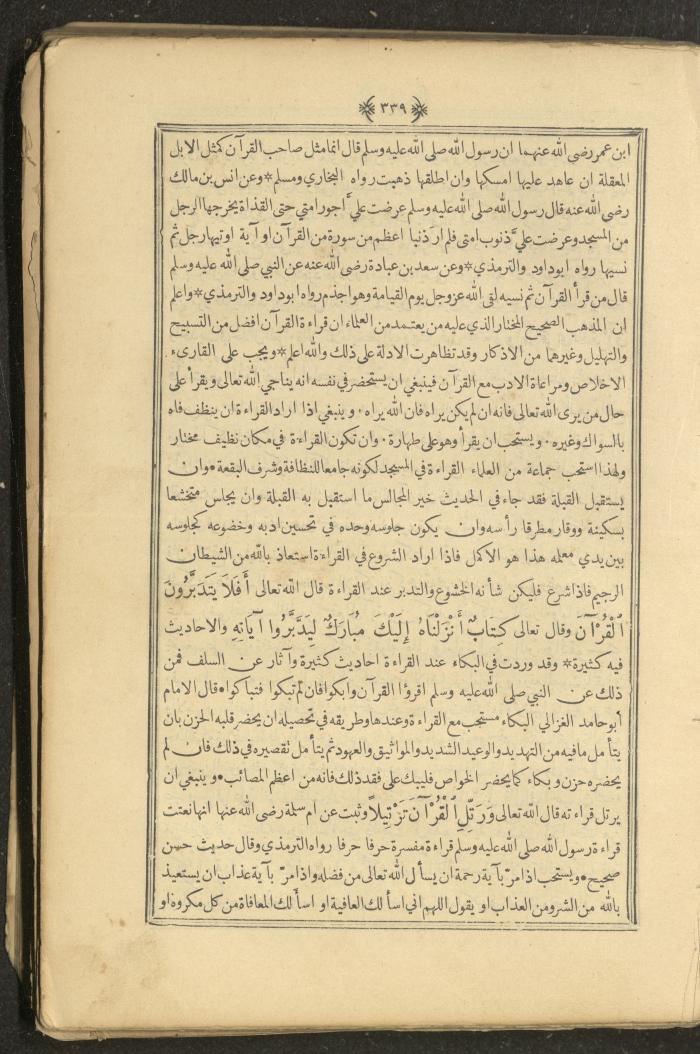 ٣٣٩
ابن عمر رضى الله عنهما ان رسول الله صلى الله عليه وسلم قال انما مثل صاحب القرآن كمثل الابل
المعقلة ان عاهد عليها امسكها وان اطلقها ذهبت رواه البخاري ومسلم * وعن انس بن مالك
رضى الله عنه قال رسول الله صلى الله عليه وسلم عرضت عليَّ اجور امتي حتى القذاة يخرجها الرجل
من المسجد وعرضت عليَّ ذنوب امتى فلم ار ذنبا اعظم من سورة من القرآن او آية اوتيها رجل ثم
نسيها رواه ابوداود والترمذي * وعن سعد بن عبادة رضى الله عنه عن النبي صلى الله عليه وسلم
قال من قرأ القرآن ثم نسيه لقى الله عز وجل يوم القيامة وهو اجذم رواه ابوداود والترمذي * واعلم
ان المذهب الصحيح المختار الذي عليه من يعتمد من العلماء ان قراءة القرآن افضل من التسبيح
والتهليل وغيرها من الاذكار وقد تظاهرت الادلة على ذلك والله اعلم * ويجب على القارىء
الاخلاص ومراعاة الادب مع القرآن فينبغي ان يستحضر في نفسه انه يناجي الله تعالى ويقرأ على
حال من يرى الله تعالى فانه ان لم يكن يراه فان الله يراه . وينبغي اذا اراد القراءة ان ينظف فاه
بالسواك وغيره . ويستحب ان يقرأ وهو على طهارة . وان تكون القراءة في مكان نظيف مختار
ولهذا استحب جماعة من العلماء القراءة في المسجد لكونه جامعا للنظافة وشرف البقعة • وان
يستقبل القبلة فقد جاء في الحديث خير المجالس ما استقبل به القبلة وان يجلس متخشعا
بسكينة ووقار مطرقا رأسه وان يكون جلوسه وحده في تحسين ادبه وخضوعه كجلوسه
بين يدي معلمه هذا هو الاكمل فاذا اراد الشروع في القراءة استعاذ بالله من الشيطان
الرجيم فاذا شرع فليكن شأنه الخشوع والتدبر عند القراءة قال الله تعالى أَفَلَا يَتَدَبَّرُونَ
ٱلْقُرْآنَ وقال تعالى كِتَابٌ أَنْزَلْنَاهُ إِلَيْكَ مُبَارَكٌ لِيَدَّبَّرُوا آيَاتِهِ والاحاديث
فيه كثيرة * وقد وردت في البكاء عند القراءة احاديث كثيرة وآثار عن السلف فمن
ذلك عن النبي صلى الله عليه وسلم اقرؤا القرآن وابكوا فان لم تبكوا فتباكوا • قال الامام
أبو حامد الغزالي البكاء مستحب مع القراءة وعندها وطريقه في تحصيله ان يحضر قلبه الحزن بان
يتأمل ما فيه من التهديد والوعيد الشديد والمواثيق والعهود ثم يتأمل تقصيره في ذلك فان لم
يحضره حزن وبكاء كما يحضر الخواص فليبك على فقد ذلك فانه من اعظم المصائب • وينبغي ان
يرتل قراءته قال الله تعالى وَرَتِّلِ ٱلْقُرْآنَ تَرْتِيلاً وثبت عن ام سلمة رضى الله عنها انها نعتت
قراءة رسول الله صلى الله عليه وسلم قراءة مفسرة حرفا حرفا رواه الترمذي وقال حديث حسن
صحيح • ويستحب اذا مرّ بآية رحمة ان يسأل الله تعالى من فضله واذا مرّ بآية عذاب ان يستعيذ
بالله من الشر ومن العذاب او يقول اللهم اني اسألك العافية او اسألك المعافاة من كل مكروه او